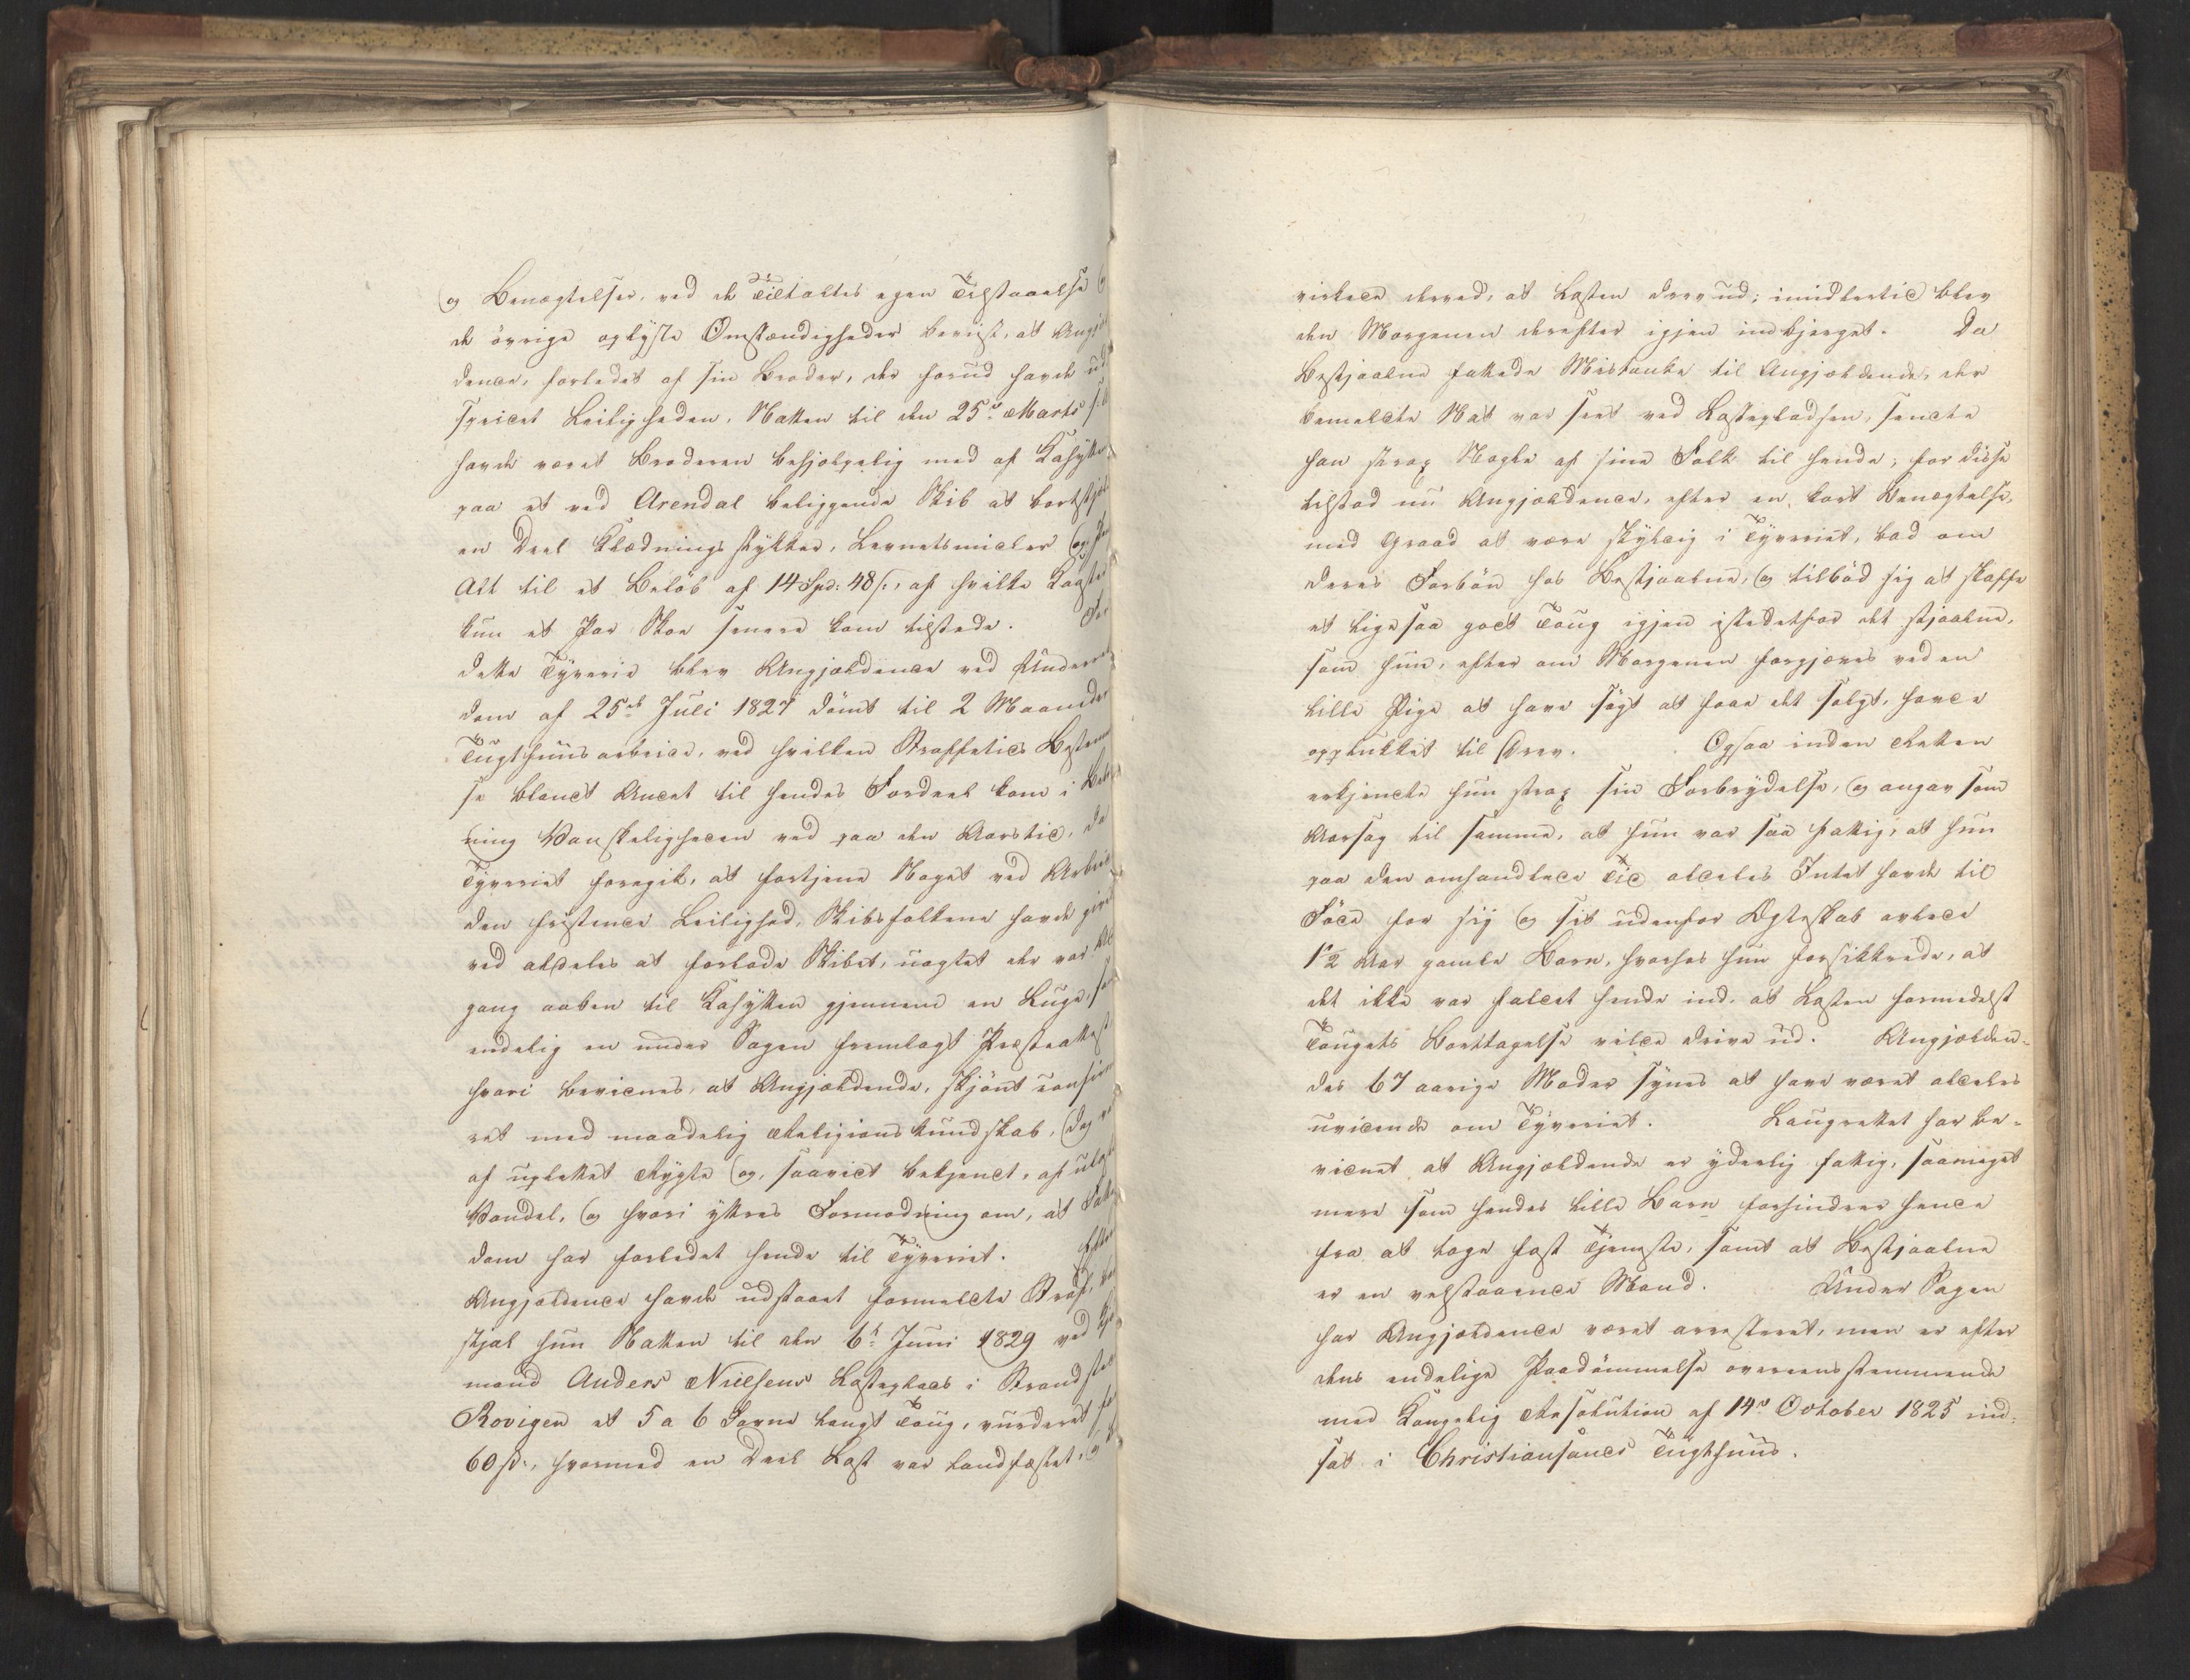 og Benægtelser, ved de Tiltaltes egen Tilstaaelse
de övrige oplyste Omstændigheder beviist, at Angjæl
dende, forledet af sin Broder, der forud havde ud
speidet Leiligheden, Natten til den 25de Marts
havde været Broderen behjælpelig med af Kahytten
paa et ved Arendal beliggende Skib at bortstjæle
en Deel Klædningsstykker, Levnetsmidler og
Alt til et Belöb af 14 Spd: 48 s., af hvilke Koster
kun et Par Skoe senere kom tilstede. For
dette Tyverie blev Angjældende ved Underrets
dom af 25de Juli 1827 dömt til 2 Maaneders
Tugthuusarbeide, ved hvilken Straffetids Bestemmel
se blandt Andet til hendes Fordeel kom i Betragt
ning Vanskeligheden ved paa den Aarstid, da
Tyveriet foregik, at fortjene Noget ved Arbeide
den fristende Leilighed, Skibsfolkene havde givet
ved aldeles at forlade Skibet, uagtet der var Ad
gang aaben til Kahytten gjennem en Luge, samt
endelig en under Sagen fremlagt Præsteattest
hvori bevidnes, at Angjældende, skjönt confirme
ret med maadelig Religionskundskab, dog er
af uplettet Rygte og, saavidt bekjendt, af ulastelig
Vandel, og hvori yttres Formodning om, at Fattig
dom har forledet hende til Tyveriet. Efterat
Angjældende havde udstaaet formeldte Straf, har
stjal hun Natten til den 6te Juni 1829 ved
mand Anders Nielsens Lasteplads i Strandstedet
Rovigen et 5 a 6 Favne langt Toug, vurderet for
60 s., hvormed en Deel Last var landfæstet, og
virkede derved, at Lasten drev ud; imidlertid blev
den Morgenen derefter igjen indbjerget. Da
Bestjaalne fattede Mistanke til Angjældende, der
bemeldte Nat var seet ved Lastepladsen, sendte
han strax Nogle af sine Folk til hende; for disse
tilstod nu Angjældende, efter en kort Benægtelse,
med Graad at være skyldig i Tyveriet, bad om
deres Forbön hos Bestjaalne, og tilböd sig at skaffe
et ligesaa godt Toug igjen istedetfor det stjaalne,
som hun, efter om Morgenen forgjæves ved en
lille Pige at have sögt at faae det solgt, havde
opplukket til Drev. Ogsaa inden Retten
erkjendte hun strax sin Forbrydelse, og angav som
Aarsag til samme, at hun var saa fattig, at hun
paa den omhandlede Tid aldeles Intet havde til
Föde for sig og sit udenfor Ægteskab avlede
1½ Aar gamle Barn, hvorhos hun forsikkrede, at
det ikke var faldet hende ind, at Lasten formedelst
Tougets Borttagelse vilde drive ud. Angjælden-
des 67 aarige Moder synes at have været aldeles
uvidende om Tyveriet. Laugrettet har be-
vidnet at Angjældende er yderlig fattig, saameget
mere som hendes lille Barn forhindrer hende
fra at tage fast Tjeneste, samt at Bestjaalne
er en velstaaende Mand. Under Sagen
har Angjældende været arresteret, men er efter
dens endelige Paadömmelse overeensstemmende
med Kongelig Resolution af 14de October 1825 ind-
sat i Christiansands Tugthuus.